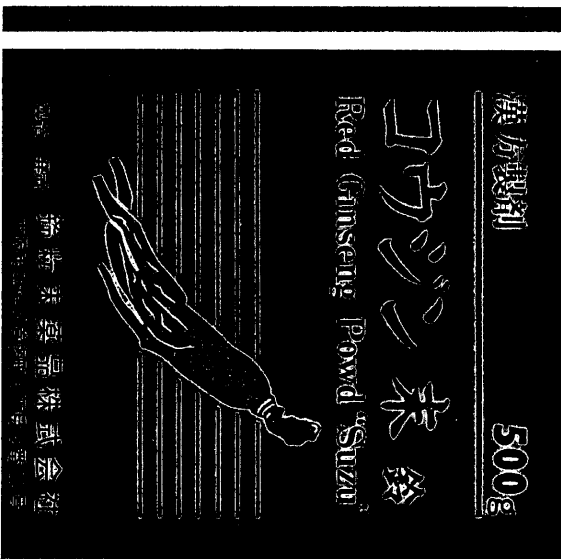 漢方製剤 500g
コウジン末 鈴
Red Ginseng Powd "Suzu"
鈴粉末薬品株式会社